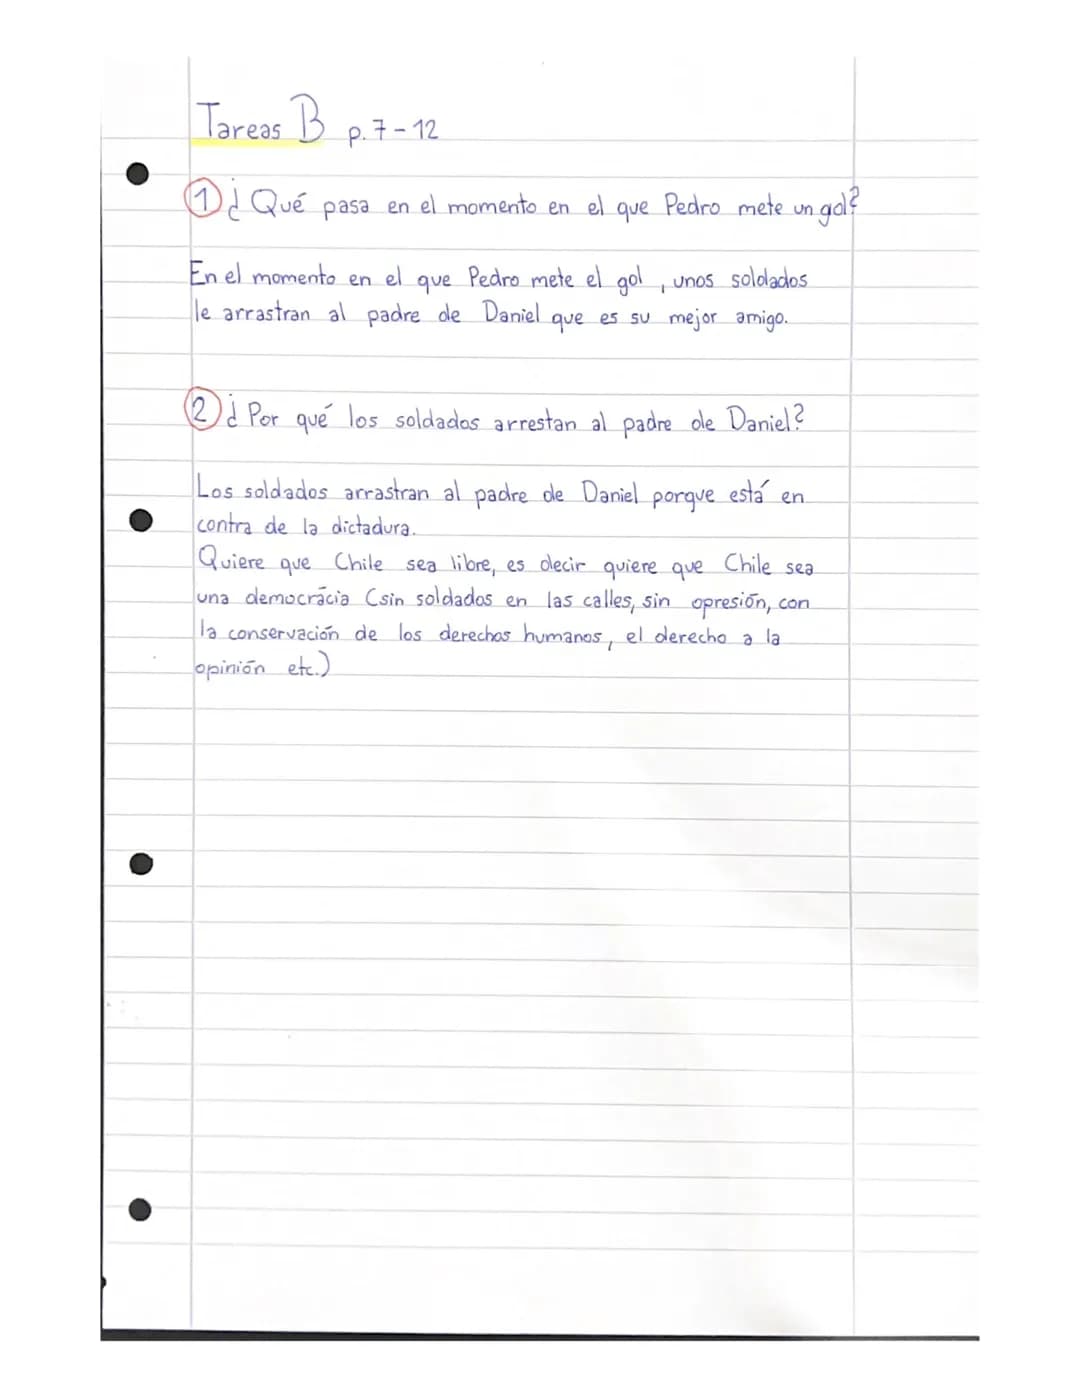 Tareas B p.7-12
1 ¿Qué pasa en el momento en el que Pedro mete un gol?
En el momento en el que Pedro mete el gol, unos soldados
le arrastran al padre de Daniel que es su mejor amigo.
2 ¿Por qué los soldados arrestan al padre de Daniel?
Los soldados arrastran al padre de Daniel porque está en
contra de la dictadura.
Quiere que Chile sea libre, es decir quiere que Chile sea
una democrácia (sin soldados en las calles, sin opresión, con
la conservación de los derechos humanos, el derecho a la
opinión etc.)